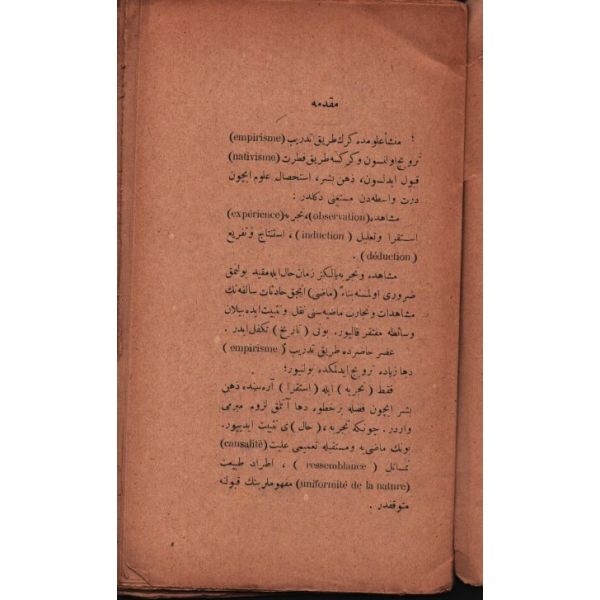 مقدمه
منشأ علومده كرك طريق تدريب (empirisme)
ترويج اولنسون و كركسه طريق فطرت (nativisme)
قبول ايدلسون، ذهن بشر، استحصال علوم ايچون
درت واسطه‌دن مستغنى دكلدر :
مشاهده (observation)، تجربه (expérience)
استقرا وتعليل (induction) ، استنتاج وتفريع
(déduction) .
مشاهده وتجربه يالكز زمان حال ايله مقيد بولنمق
ضرورى اولمسنه بناءً (ماضى) ايچق حادثات سالفه‌نك
مشاهدات وتجارب ماضيه‌سنى نقل و تثبيت ايده‌بيلان
وسائطه مفتقر قاليور. بونى (تاريخ) تكفل ايدر .
عصر حاضرده طريق تدريب (empirisme)
دها زياده ترويج ايدلمكده بولنيور؛
فقط (تجربه) ايله (استقرا) آره‌سنده ذهن
بشر ايچون فضله بر خطوه دها آتلمق لزوم مبرمى
واردر. چونكه تجربه، (حال) ى تثبيت ايدييور.
بونك ماضى‌يه ومستقبله تعميمى عليت (causalité)
تماثل (ressemblance) ، اطراد طبيعت
(uniformité de la nature) مفهوملرينك قبولنه
متوقفدر .